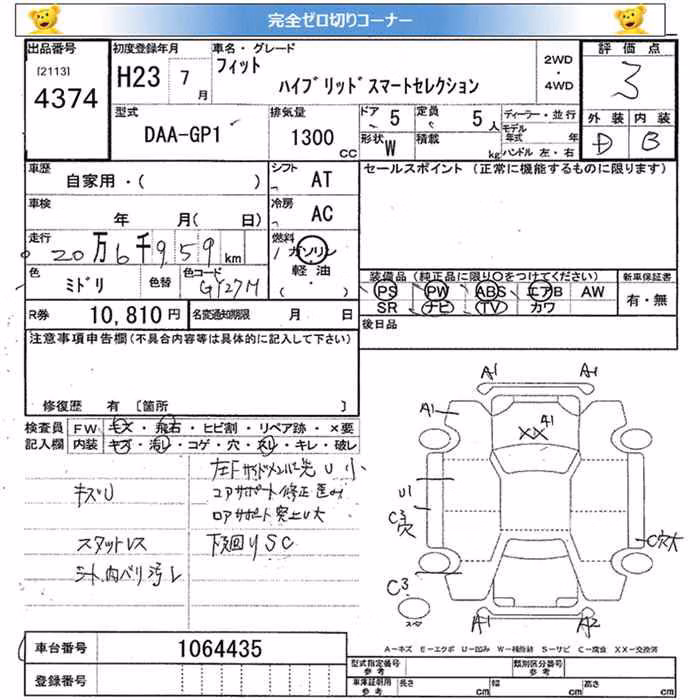 完全ゼロ切りコーナー
出品番号
[2113]
4374
初度登録年月
H23 7月
車名・グレード
フィット
ハイブリッドスマートセレクション
2WD
・
4WD
評価点
3
外装 内装
D B
型式
DAA-GP1
排気量
1300
CC
ドア 5
定員 5人
形状 W
積載 kg
ディーラー・並行
モデル年式 年
ハンドル 左・右
車歴
自家用・( )
シフト
AT
セールスポイント (正常に機能するものに限ります)
車検
年 月( 日)
冷房
AC
走行
20万6千959km
燃料
ガソリン
軽油
( ・ )
色
ミドリ
色替
色コード
GY27M
装備品(純正品に限り〇をつけてください)
PS PW ABS エアB AW
SR ナビ TV カワ
新車保証書
有・無
R券 10,810円
名変通知期限 月 日
後日品
注意事項申告欄(不具合内容等は具体的に記入して下さい)
修復歴 有 [箇所 ]
検査員
記入欄
FW キズ・飛石・ヒビ割・リペア跡・×要
内装 キズ・汚レ・コゲ・穴・スレ・キレ・破レ
左Fサイドメンバー先U小
キズU
コアサポート修正歪み
ロアサポート突上U大
スタットレス
下廻りSC
シート、内ベリ汚レ
A1 A1
A1
41
XX
U1
C3
穴
C穴大
C3
スペア
A1 A2
A-キズ E-エクボ U-凹み W-補修跡 S-サビ C-腐食 XX-交換済
車台番号 1064435
登録番号
型式指定番号
参考
類別区分番号
参考
車庫証明用
参考
長さ cm
幅 cm
高さ cm